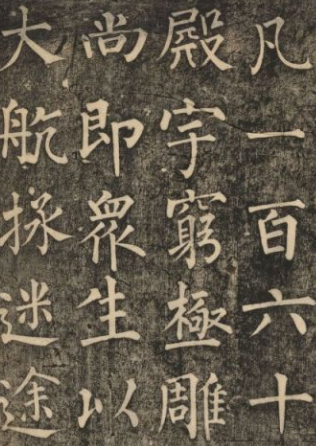 凡一百六十
殿宇窮極雕
尚即眾生以
大航拯迷途